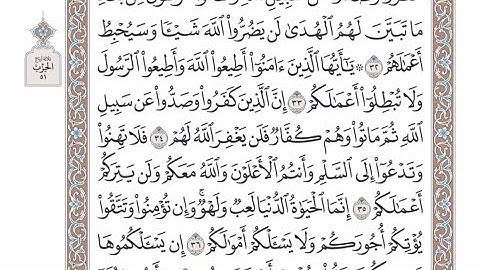 مَا تَبَيَّنَ لَهُمُ ٱلْهُدَىٰ لَن يَضُرُّوا۟ ٱللَّهَ شَيْـًٔا وَسَيُحْبِطُ
أَعْمَٰلَهُمْ ٣٢ ۞ يَٰٓأَيُّهَا ٱلَّذِينَ ءَامَنُوٓا۟ أَطِيعُوا۟ ٱللَّهَ وَأَطِيعُوا۟ ٱلرَّسُولَ
وَلَا تُبْطِلُوٓا۟ أَعْمَٰلَكُمْ ٣٣ إِنَّ ٱلَّذِينَ كَفَرُوا۟ وَصَدُّوا۟ عَن سَبِيلِ
ٱللَّهِ ثُمَّ مَاتُوا۟ وَهُمْ كُفَّارٌ فَلَن يَغْفِرَ ٱللَّهُ لَهُمْ ٣٤ فَلَا تَهِنُوا۟
وَتَدْعُوٓا۟ إِلَى ٱلسَّلْمِ وَأَنتُمُ ٱلْأَعْلَوْنَ وَٱللَّهُ مَعَكُمْ وَلَن يَتِرَكُمْ
أَعْمَٰلَكُمْ ٣٥ إِنَّمَا ٱلْحَيَوٰةُ ٱلدُّنْيَا لَعِبٌ وَلَهْوٌ ۚ وَإِن تُؤْمِنُوا۟ وَتَتَّقُوا۟
يُؤْتِكُمْ أُجُورَكُمْ وَلَا يَسْـَٔلْكُمْ أَمْوَٰلَكُمْ ٣٦ إِن يَسْـَٔلْكُمُوهَا
الحزب
٥١